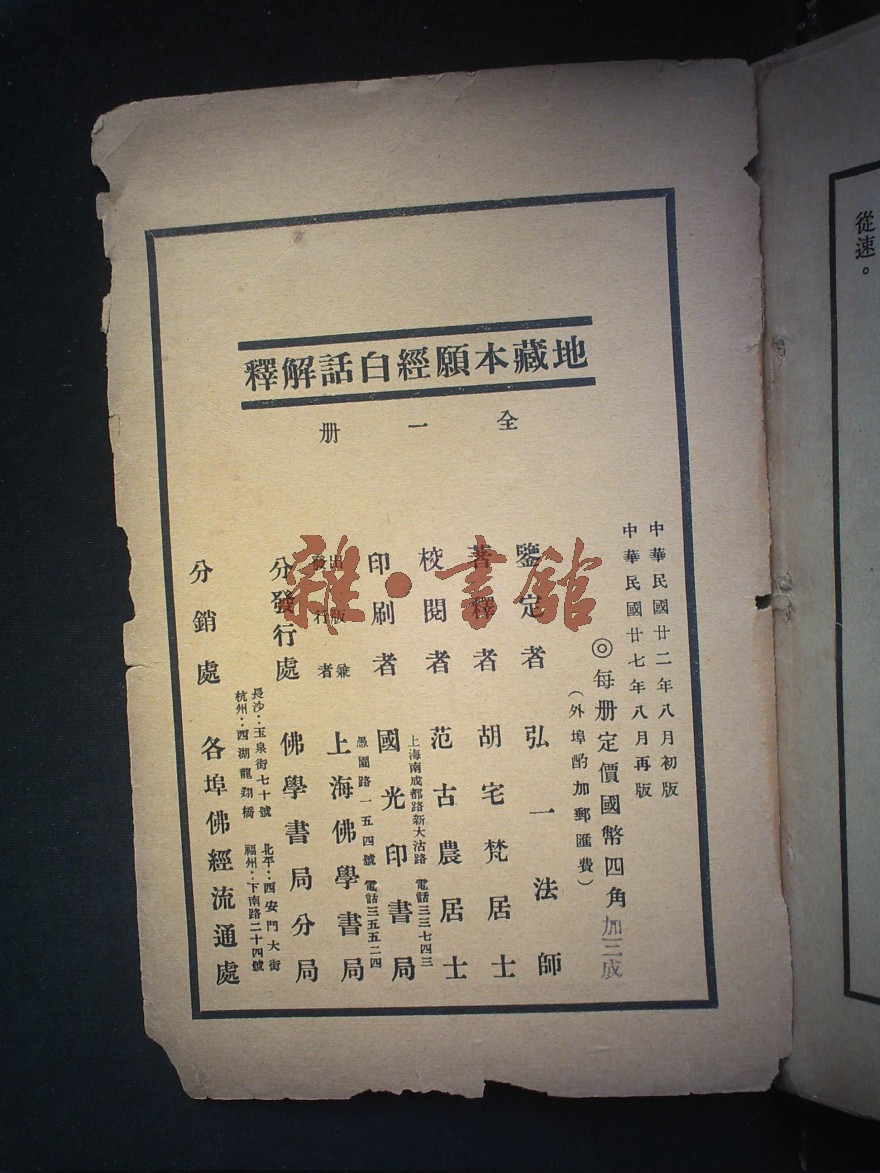 地藏本願經白話解釋
全一册
中華民國廿二年八月初版
中華民國廿七年八月再版
◎每册定價國幣四角加三成
（外埠酌加郵匯費）
鑒定者 弘一法師
著釋者 胡宅梵居士
校閱者 范古農居士
上海南成都路新大沽路 電話三三七四三
印刷者 國光印書局
愚園路一五四號 電話三五五二四
出版兼發行者 上海佛學書局
分發行處 佛學書局分局
長沙：玉泉街七十號 北平：西安門大街
杭州：西湖龍翔橋 福州：下南路二十四號
分銷處 各埠佛經流通處
從速。
雜·書館